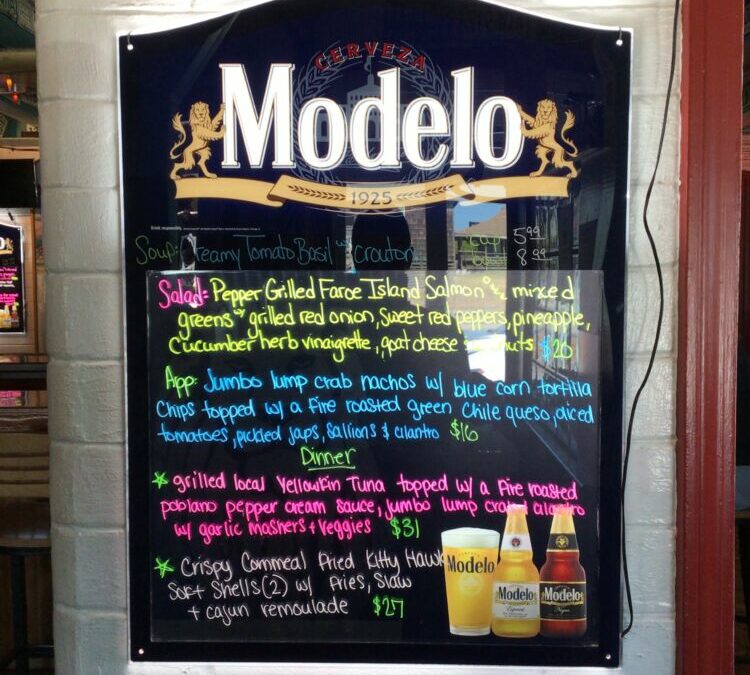 CERVEZA
Modelo
1925
Soup: Creamy Tomato Basil w/ crouton cup 5.99
8.99
Salad: Pepper Grilled Faroe Island Salmon over mixed
greens w/ grilled red onion, sweet red peppers, pineapple,
cucumber herb vinaigrette, goat cheese $20
App: Jumbo lump crab nachos w/ blue corn tortilla
chips topped w/ a fire roasted green chile queso, diced
tomatoes, pickled japs, sallions & cilantro $16
Dinner
grilled local Yellowfin Tuna topped w/ a fire roasted
poblano pepper cream sauce, jumbo lump crab & cilantro
w/ garlic mashers + veggies $31
Crispy Cornmeal fried Kitty Hawk
Soft Shells (2) w/ fries, slaw
+ cajun remoulade $27
Modelo
Modelo
Especial
Modelo
Negra